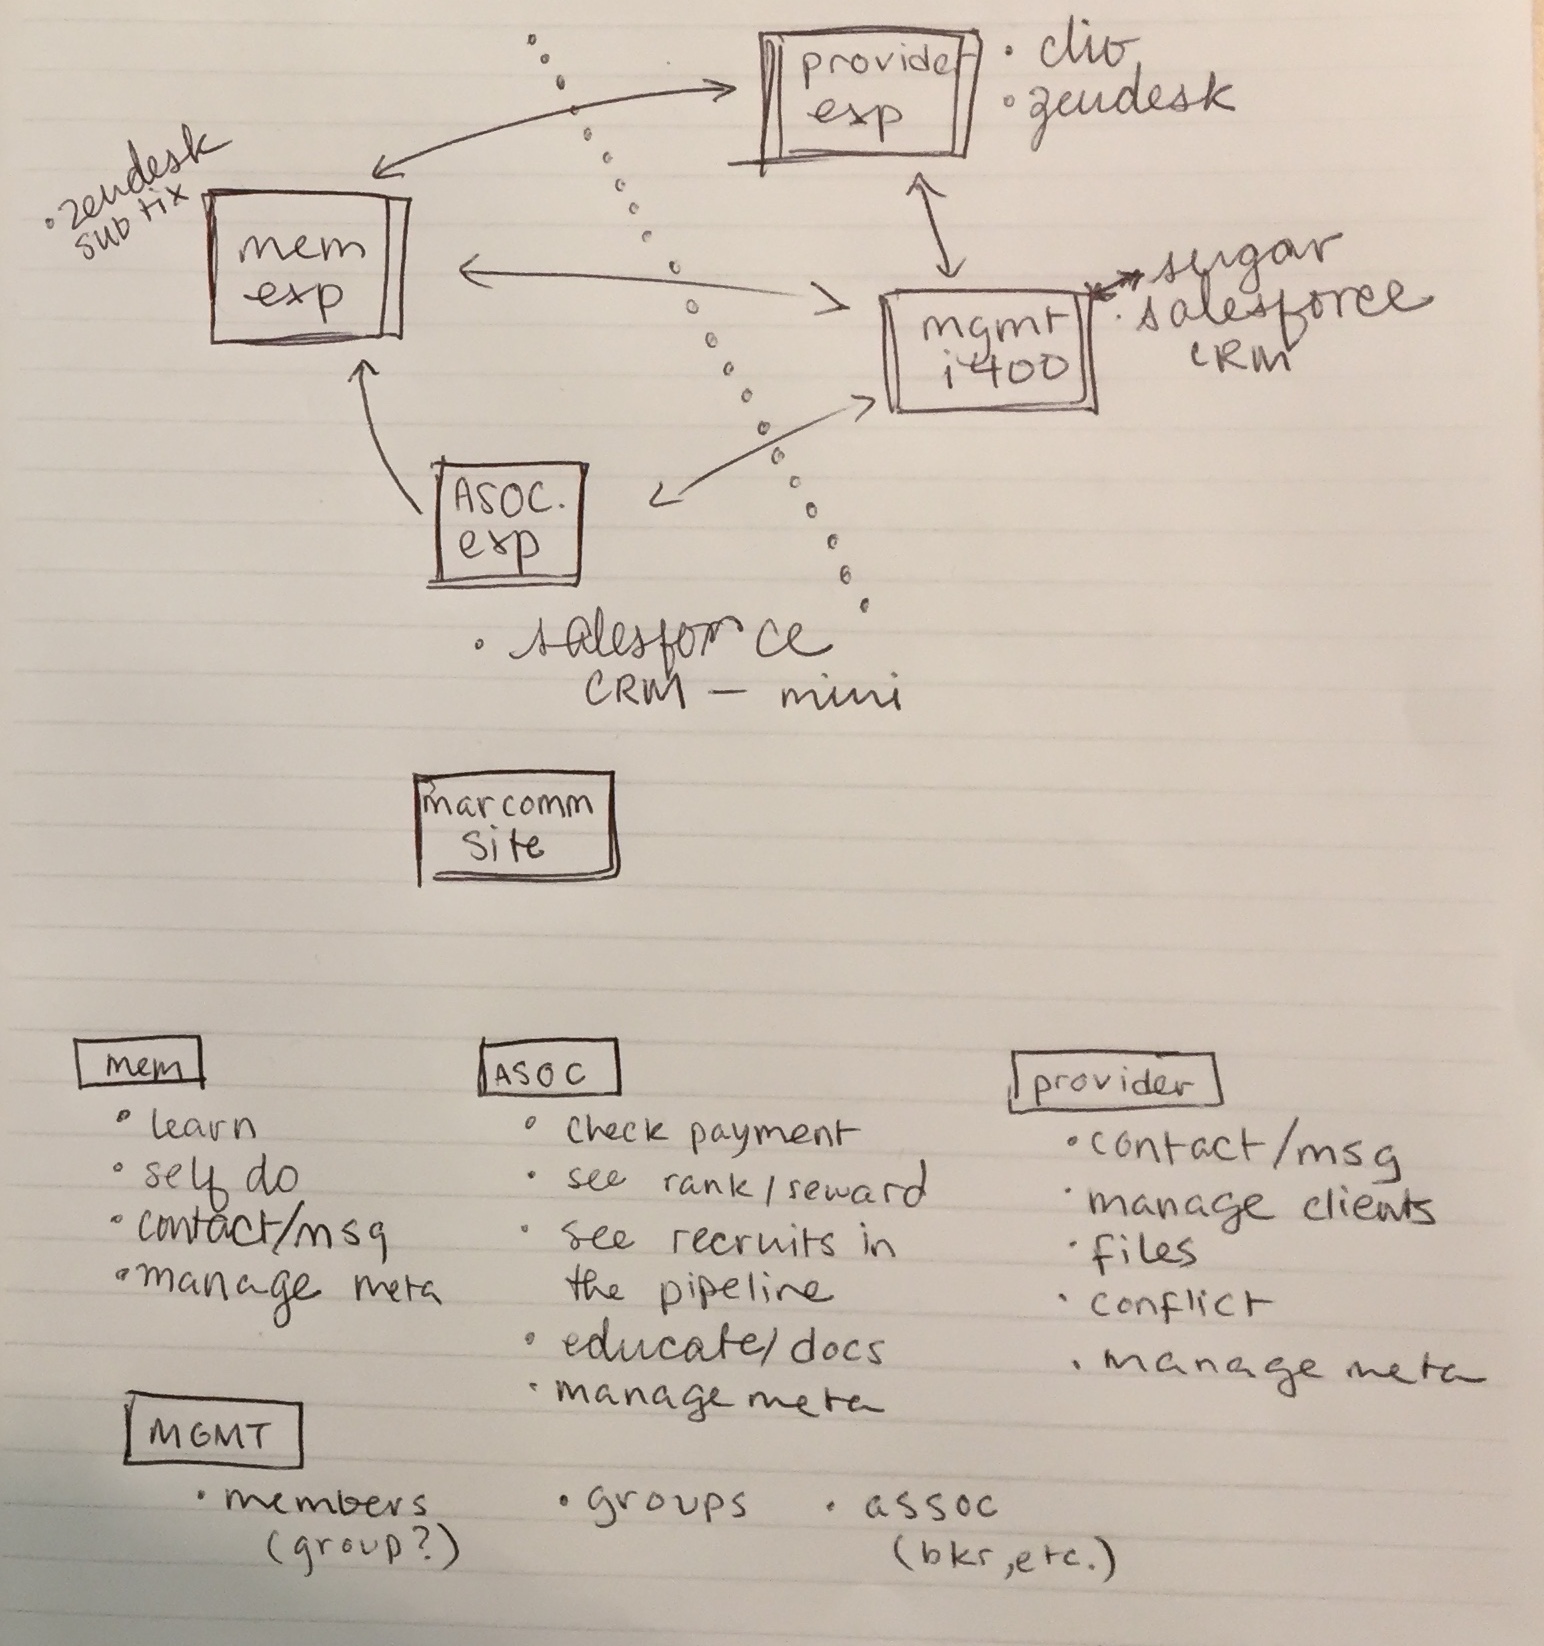 provider
exp
• clio
• zendesk
• zendesk
sub tix
mem
exp
mgmt
i400
sugar
• salesforce
CRM
ASOC.
exp
• salesforce
CRM — mini
marcomm
site
mem
• learn
• self do
• contact/msg
• manage meta
ASOC
• check payment
• see rank/reward
• see recruits in
the pipeline
• educate/docs
• manage meta
provider
• contact/msg
• manage clients
• files
• conflict
• manage meta
MGMT
• members
(group?)
• groups
• assoc
(bkr, etc.)